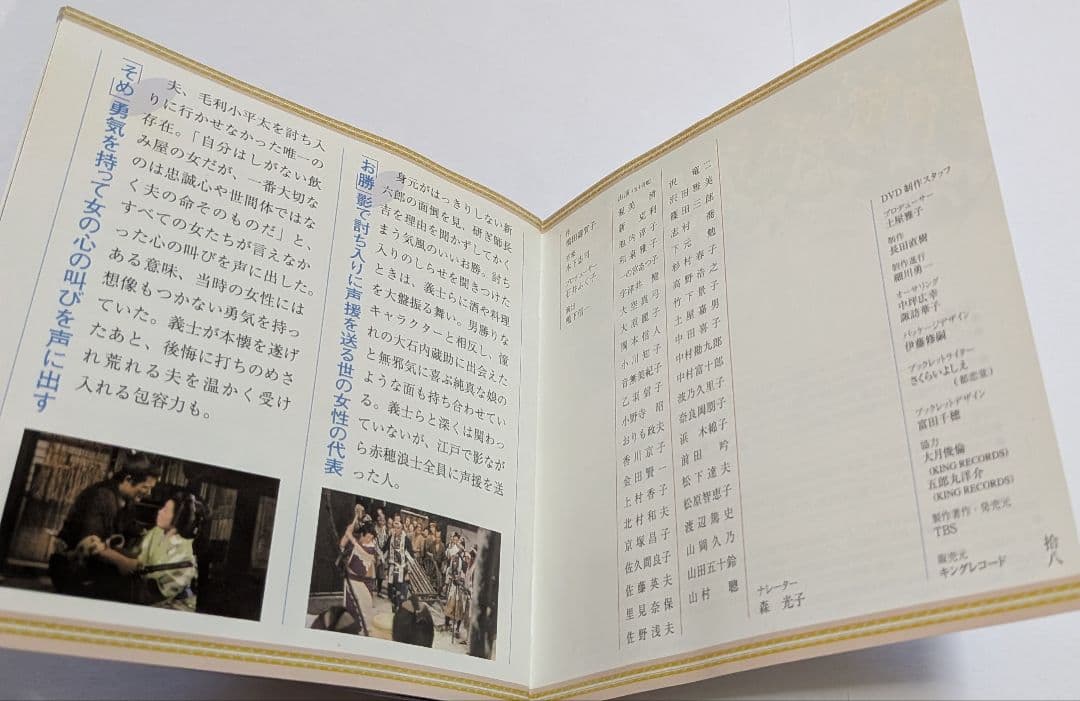 「お勝」影で討ち入りに声援を送る世の女性の代表
身元がはっきりしない新
六郎の面倒を見、研ぎ師長
吉を理由を聞かずしてかく
まう気風のいいお勝。討ち
入りのしらせを聞きつけた
ときは、義士らに酒や料理
を大盤振る舞い。男勝りな
キャラクターと相反し、憧
れの大石内蔵助に出会えた
と無邪気に喜ぶ純真な娘の
ような面も持ち合わせてい
る。義士らと深くは関わっ
ていないが、江戸で影なが
ら赤穂浪士全員に声援を送
った人。
「そめ」勇気を持って女の心の叫びを声に出す
夫、毛利小平太を討ち入
りに行かせなかった唯一の
存在。「自分はしがない飲
み屋の女だが、一番大切な
のは忠誠心や世間体ではな
く夫の命そのものだ」と、
すべての女たちが言えなか
った心の叫びを声に出した。
ある意味、当時の女性には
想像もつかない勇気を持っ
ていた。義士が本懐を遂げ
たあと、後悔に打ちのめさ
れ荒れる夫を温かく受け
入れる包容力も。
DVD制作スタッフ
プロデューサー
土屋雅子
制作
長田直樹
制作進行
細川勇一
オーサリング
中坪広幸
諏訪華子
パッケージデザイン
伊藤修嗣
ブックレットライター
さくらいよしえ
(都恋堂)
ブックレットデザイン
富田千穂
協力
大月俊倫
(KING RECORDS)
五郎丸洋介
(KING RECORDS)
製作著作・発売元
TBS
販売元
キングレコード
ナレーター
森 光子
沢 竜二
沢田雅美
篠田三郎
志村 喬
下元 勉
杉村春子
高野浩之
竹下景子
土屋嘉男
中田喜子
中村勘九郎
中村富十郎
波乃久里子
奈良岡朋子
浜 木綿子
前田 吟
松下達夫
松原智恵子
渡辺篤史
山岡久乃
山田五十鈴
山村 聰
池内淳子
一の宮あつ子
宇津井 健
大空真弓
岡本信人
小川知子
音無美紀子
乙羽信子
小野寺 昭
おりも政夫
香川京子
金田賢一
上村香子
北村和夫
京塚昌子
佐久間良子
佐藤英夫
里見奈保
佐野浅夫
拾八